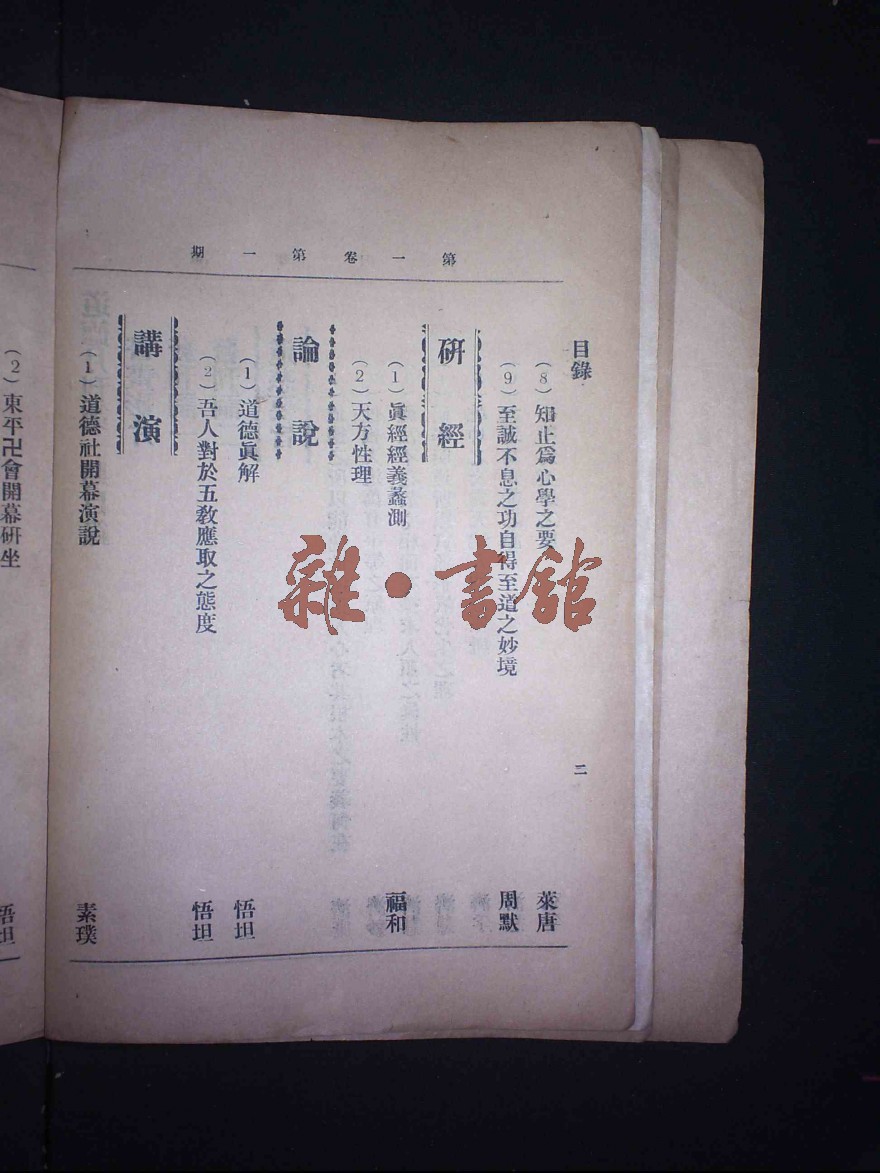 第一卷第一期
目錄 二
(8)知止爲心學之要 萊唐
(9)至誠不息之功自得至道之妙境 周默
硏經
(1)眞經經義蠡測 福和
(2)天方性理
論說
(1)道德眞解 悟坦
(2)吾人對於五敎應取之態度 悟坦
講演
(1)道德社開幕演說 素璞
(2)東平卍會開幕硏坐 悟坦
雜·書館